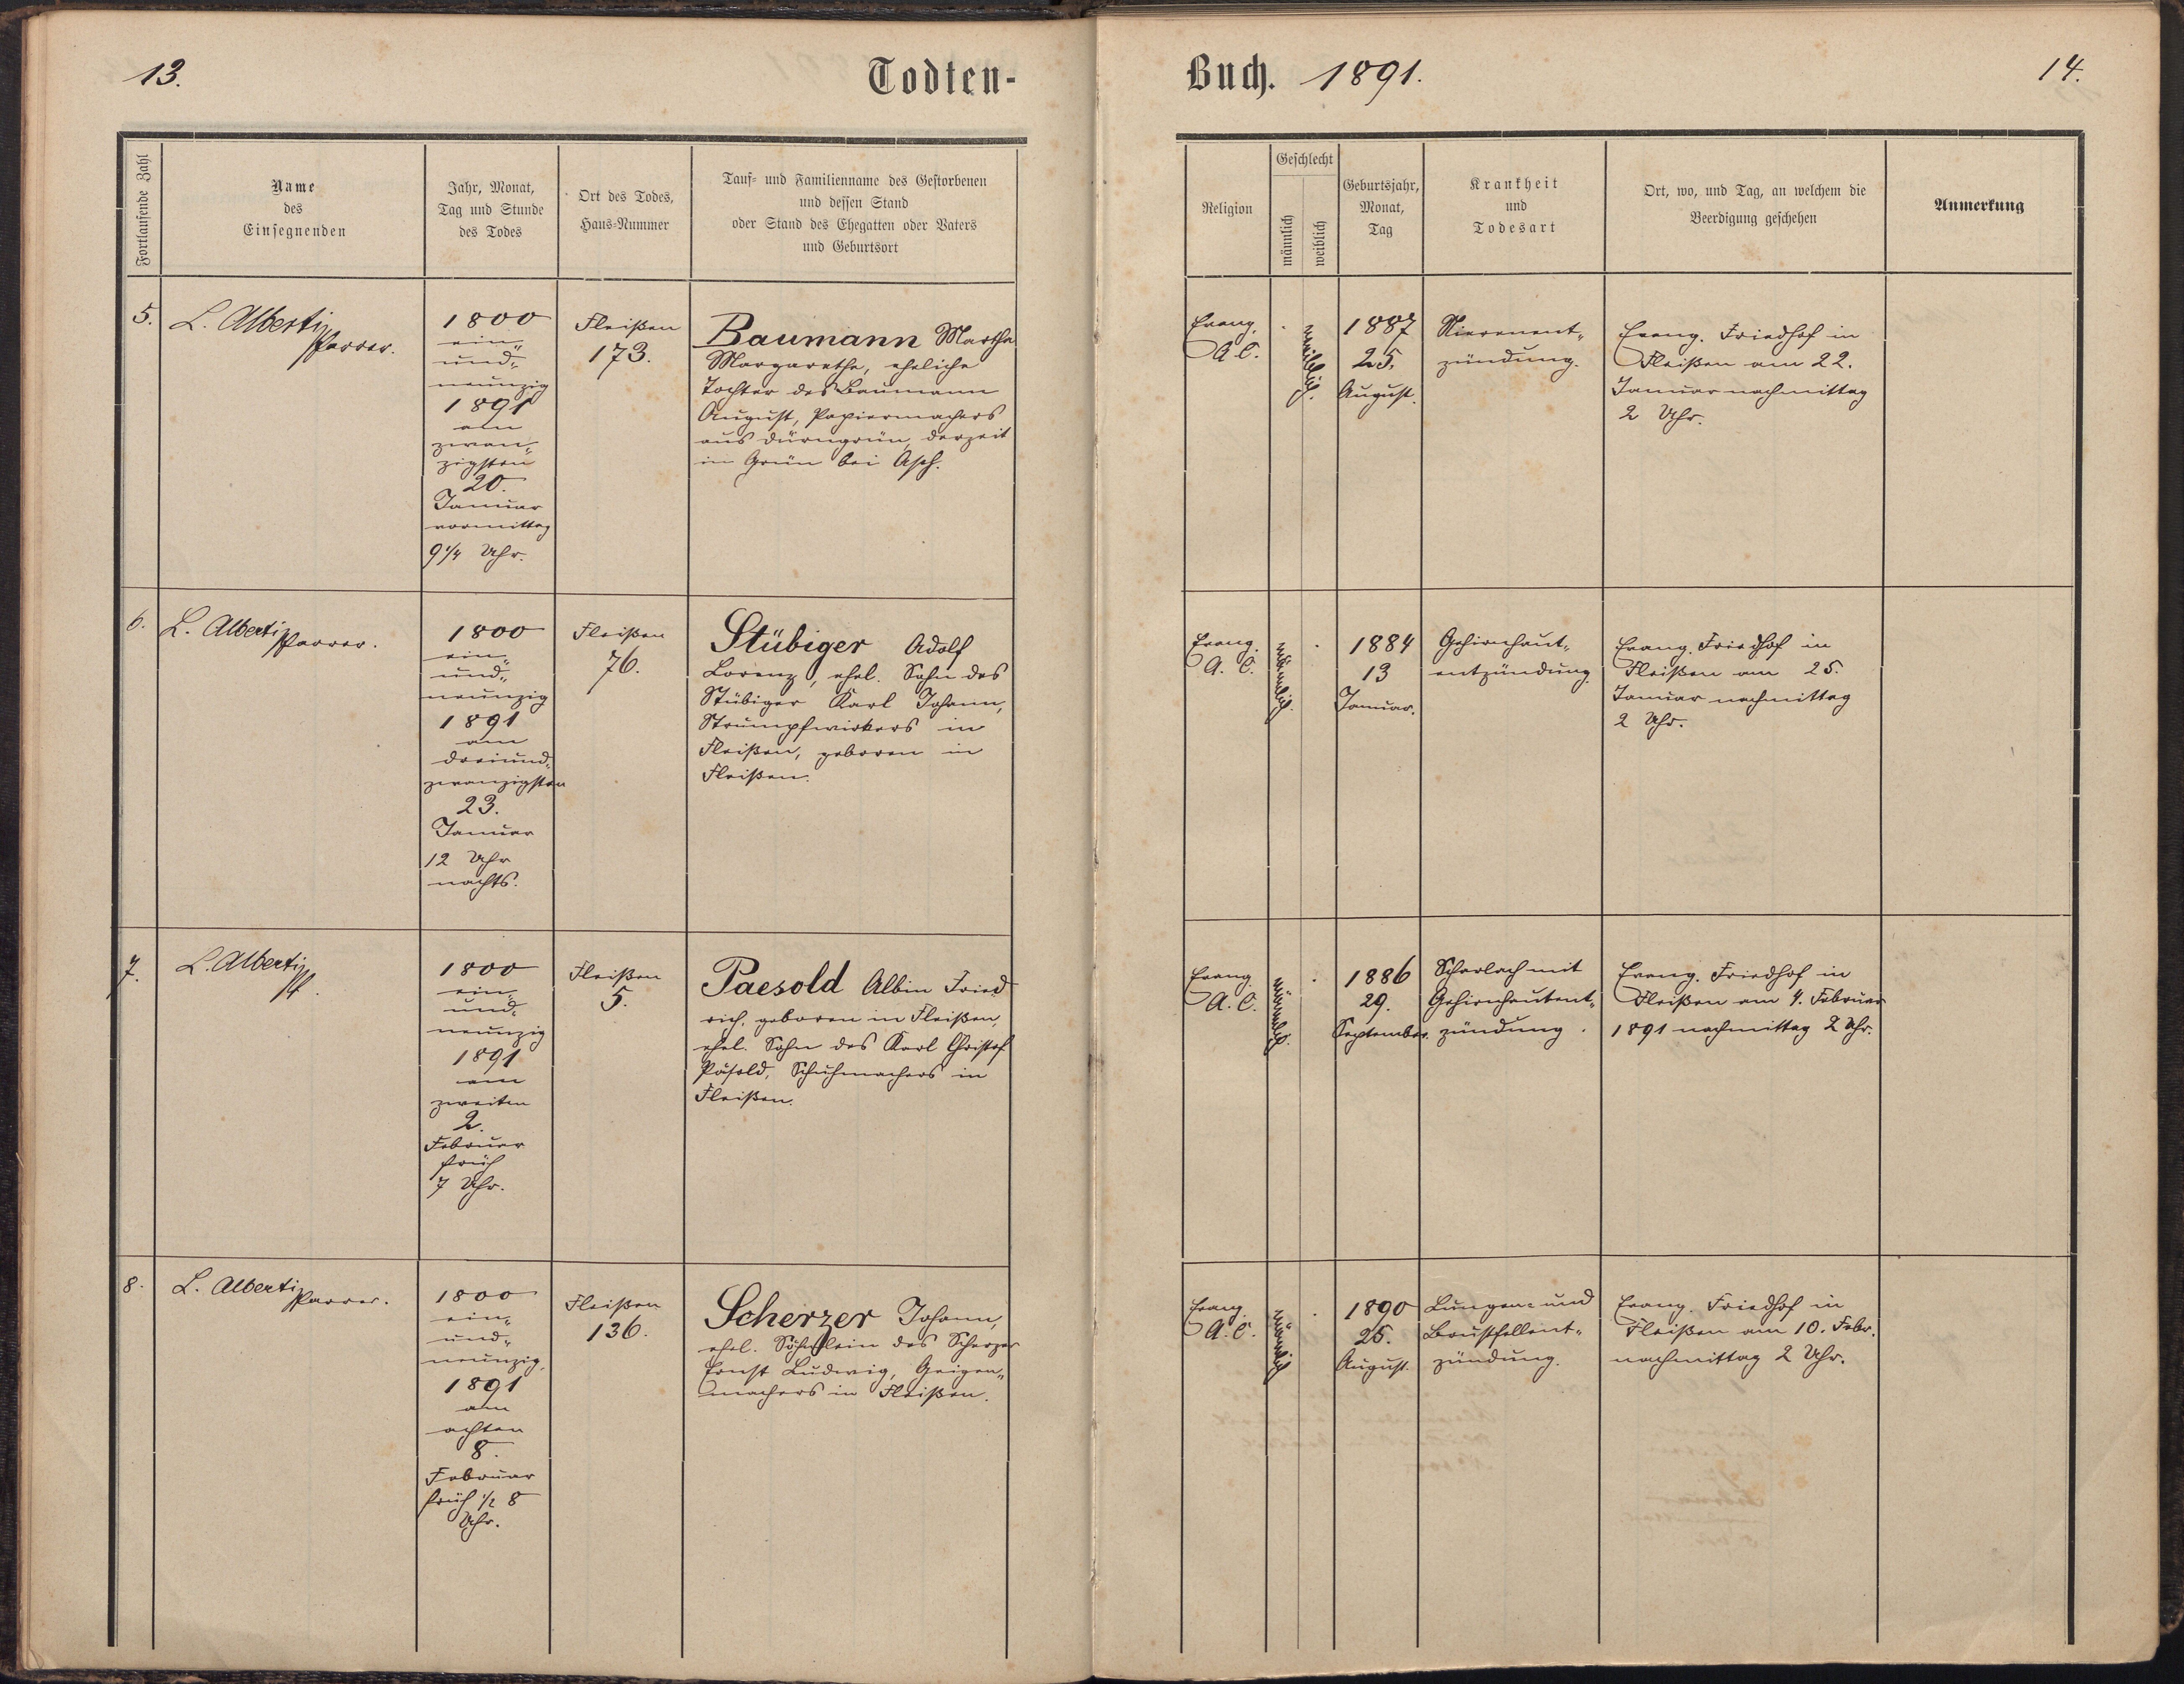 13.
Todten-
Fortlaufende Zahl
Name
des
Einsegnenden
Jahr, Monat,
Tag und Stunde
des Todes
Ort des Todes,
Haus-Nummer
Tauf- und Familienname des Gestorbenen
und dessen Stand
oder Stand des Ehegatten oder Vaters
und Geburtsort
5.
L. Alberti
Pfarrer.
1800
ein„
und„
neunzig
1891
am
zwan„
zigsten
20.
Januar
vormittag
9 1/4 Uhr.
Fleißen
173.
Baumann Martha
Margarethe, eheliche
Tochter des Baumann
August, Papiermachers
aus Dürngrün, derzeit
in Grün bei Asch.
6.
L. Alberti
Pfarrer.
1800
ein„
und„
neunzig
1891
am
dreiund„
zwanzigsten
23.
Januar
12 Uhr
nachts.
Fleißen
76.
Stübiger Adolf
Lorenz, ehel. Sohn des
Stübiger Karl Johann,
Strumpfwirkers in
Fleißen, geboren in
Fleißen.
7.
L. Alberti
Pf.
1800
ein„
und„
neunzig
1891
am
zweiten
2.
Februar
früh
7 Uhr.
Fleißen
5.
Paesold Albin Fried
rich, geboren in Fleißen,
ehel. Sohn des Karl Christof
Päsold, Schuhmachers in
Fleißen.
8.
L. Alberti
Pfarrer.
1800
ein„
und„
neunzig,
1891
am
achten
8.
Februar
früh 1/2 8
Uhr.
Fleißen
136.
Scherzer Johann,
ehel. Söhnlein des Scherzer
Ernst Ludwig, Geigen„
machers in Fleißen.
Buch. 1891.
14.
Religion
Geschlecht
männlich
weiblich
Geburtsjahr,
Monat,
Tag
Krankheit
und
Todesart
Ort, wo, und Tag, an welchem die
Beerdigung geschehen
Anmerkung
Evang.
A. C.
weiblich.
1887
25.
August.
Nierenent„
zündung.
Evang. Friedhof in
Fleißen am 22.
Januar nachmittag
2 Uhr.
Evang.
A. C.
männlich.
1884
13
Januar.
Gehirnhaut„
entzündung.
Evang. Friedhof in
Fleißen am 25.
Januar nachmittag
2 Uhr.
Evang.
A. C.
männlich.
1886
29.
September.
Scharlach mit
Gehirnhautent„
zündung.
Evang. Friedhof in
Fleißen am 4. Februar
1891 nachmittag 2 Uhr.
Evang.
A. C.
männlich
1890
25.
August.
Lungen- und
Brustfellent„
zündung.
Evang. Friedhof in
Fleißen am 10. Febr.
nachmittag 2 Uhr.